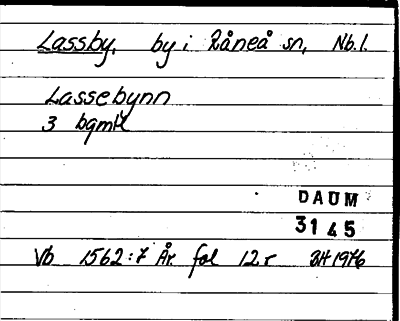 Lassby, by i Råneå sn, Nb.l.
Lassebynn
3 bgmk
DAUM
3145
Vb 1562:7 År fol 12r 1976